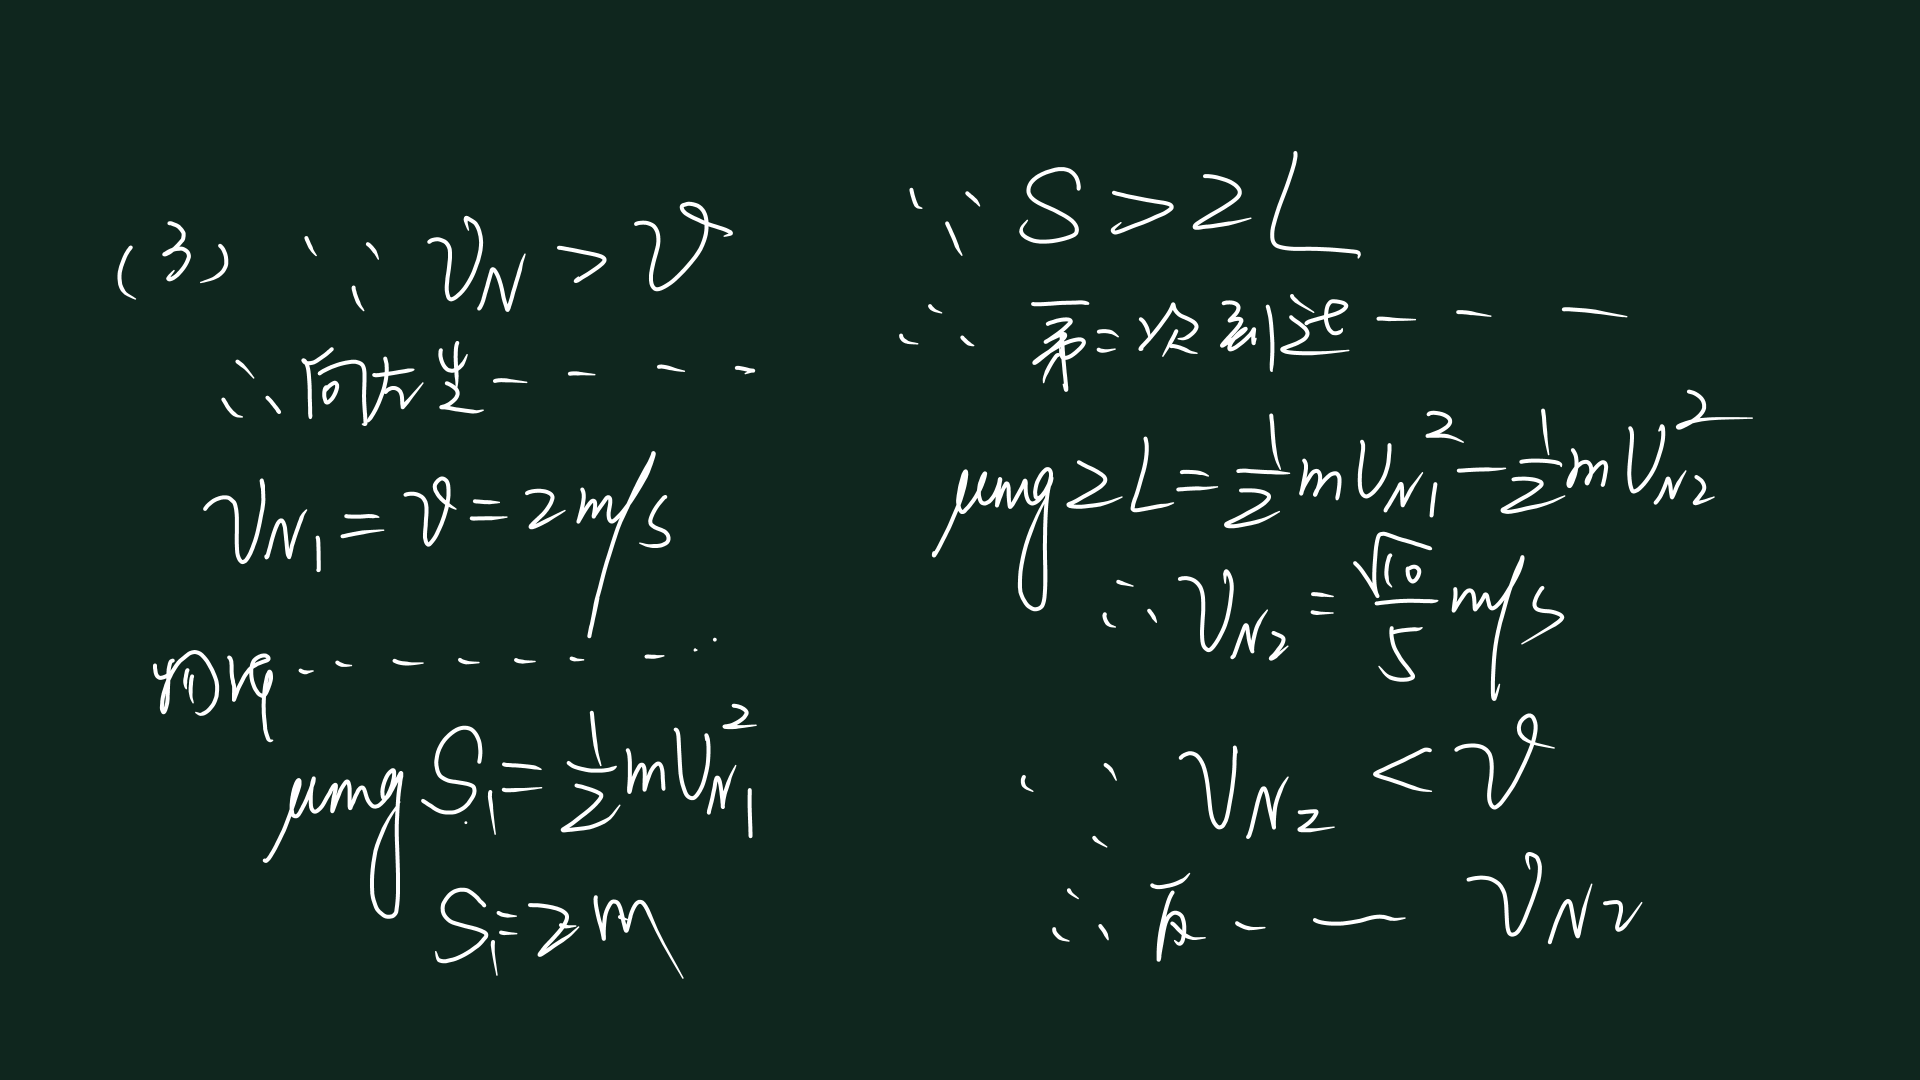 (3) ∵ v_N > v
∴ 向左生 - - - -
v_N1 = v = 2m/s
μmg S₁ = ½ m v_N1²
S₁ = 2m
∵ S > 2L
∴ 第二次到达 - - -
μmg 2L = ½ m v_N1² - ½ m v_N2²
∴ v_N2 = √10/5 m/s
∵ v_N2 < v
∴ 反 - — v_N2